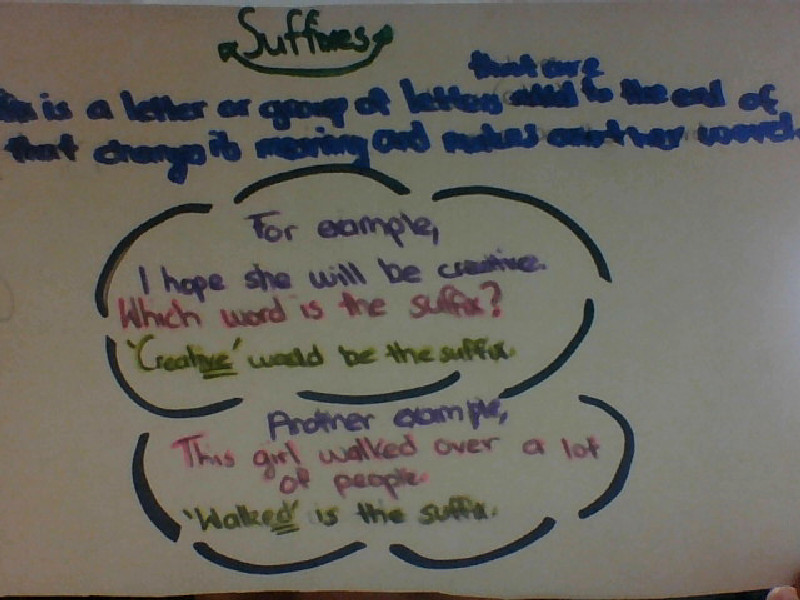 Suffixes
that are
is a letter or group of letters add to the end of
that change its meaning and makes another word.
For example,
I hope she will be creative.
Which word is the suffix?
'Creative' would be the suffix.
Another example,
This girl walked over a lot
of people.
'Walked' is the suffix.